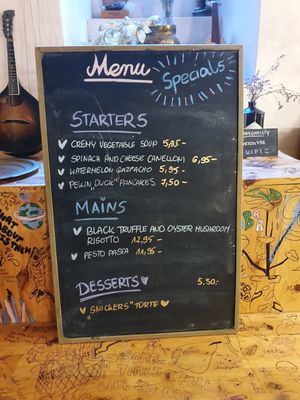 Menu
Specials
STARTERS
CREMY VEGETABLE SOUP 5,95-
SPINACH AND CHEESE CANELLONI 6,95-
WATERMELON GAZPACHO 5,95-
"DUCK" PANCAKES 7,50-
MAINS
BLACK TRUFFLE AND OYSTER MUSHROOM
RISOTTO 12,95-
PESTO PASTA 11,95-
DESSERTS 5.50.-
"SNICKERS" TORTE